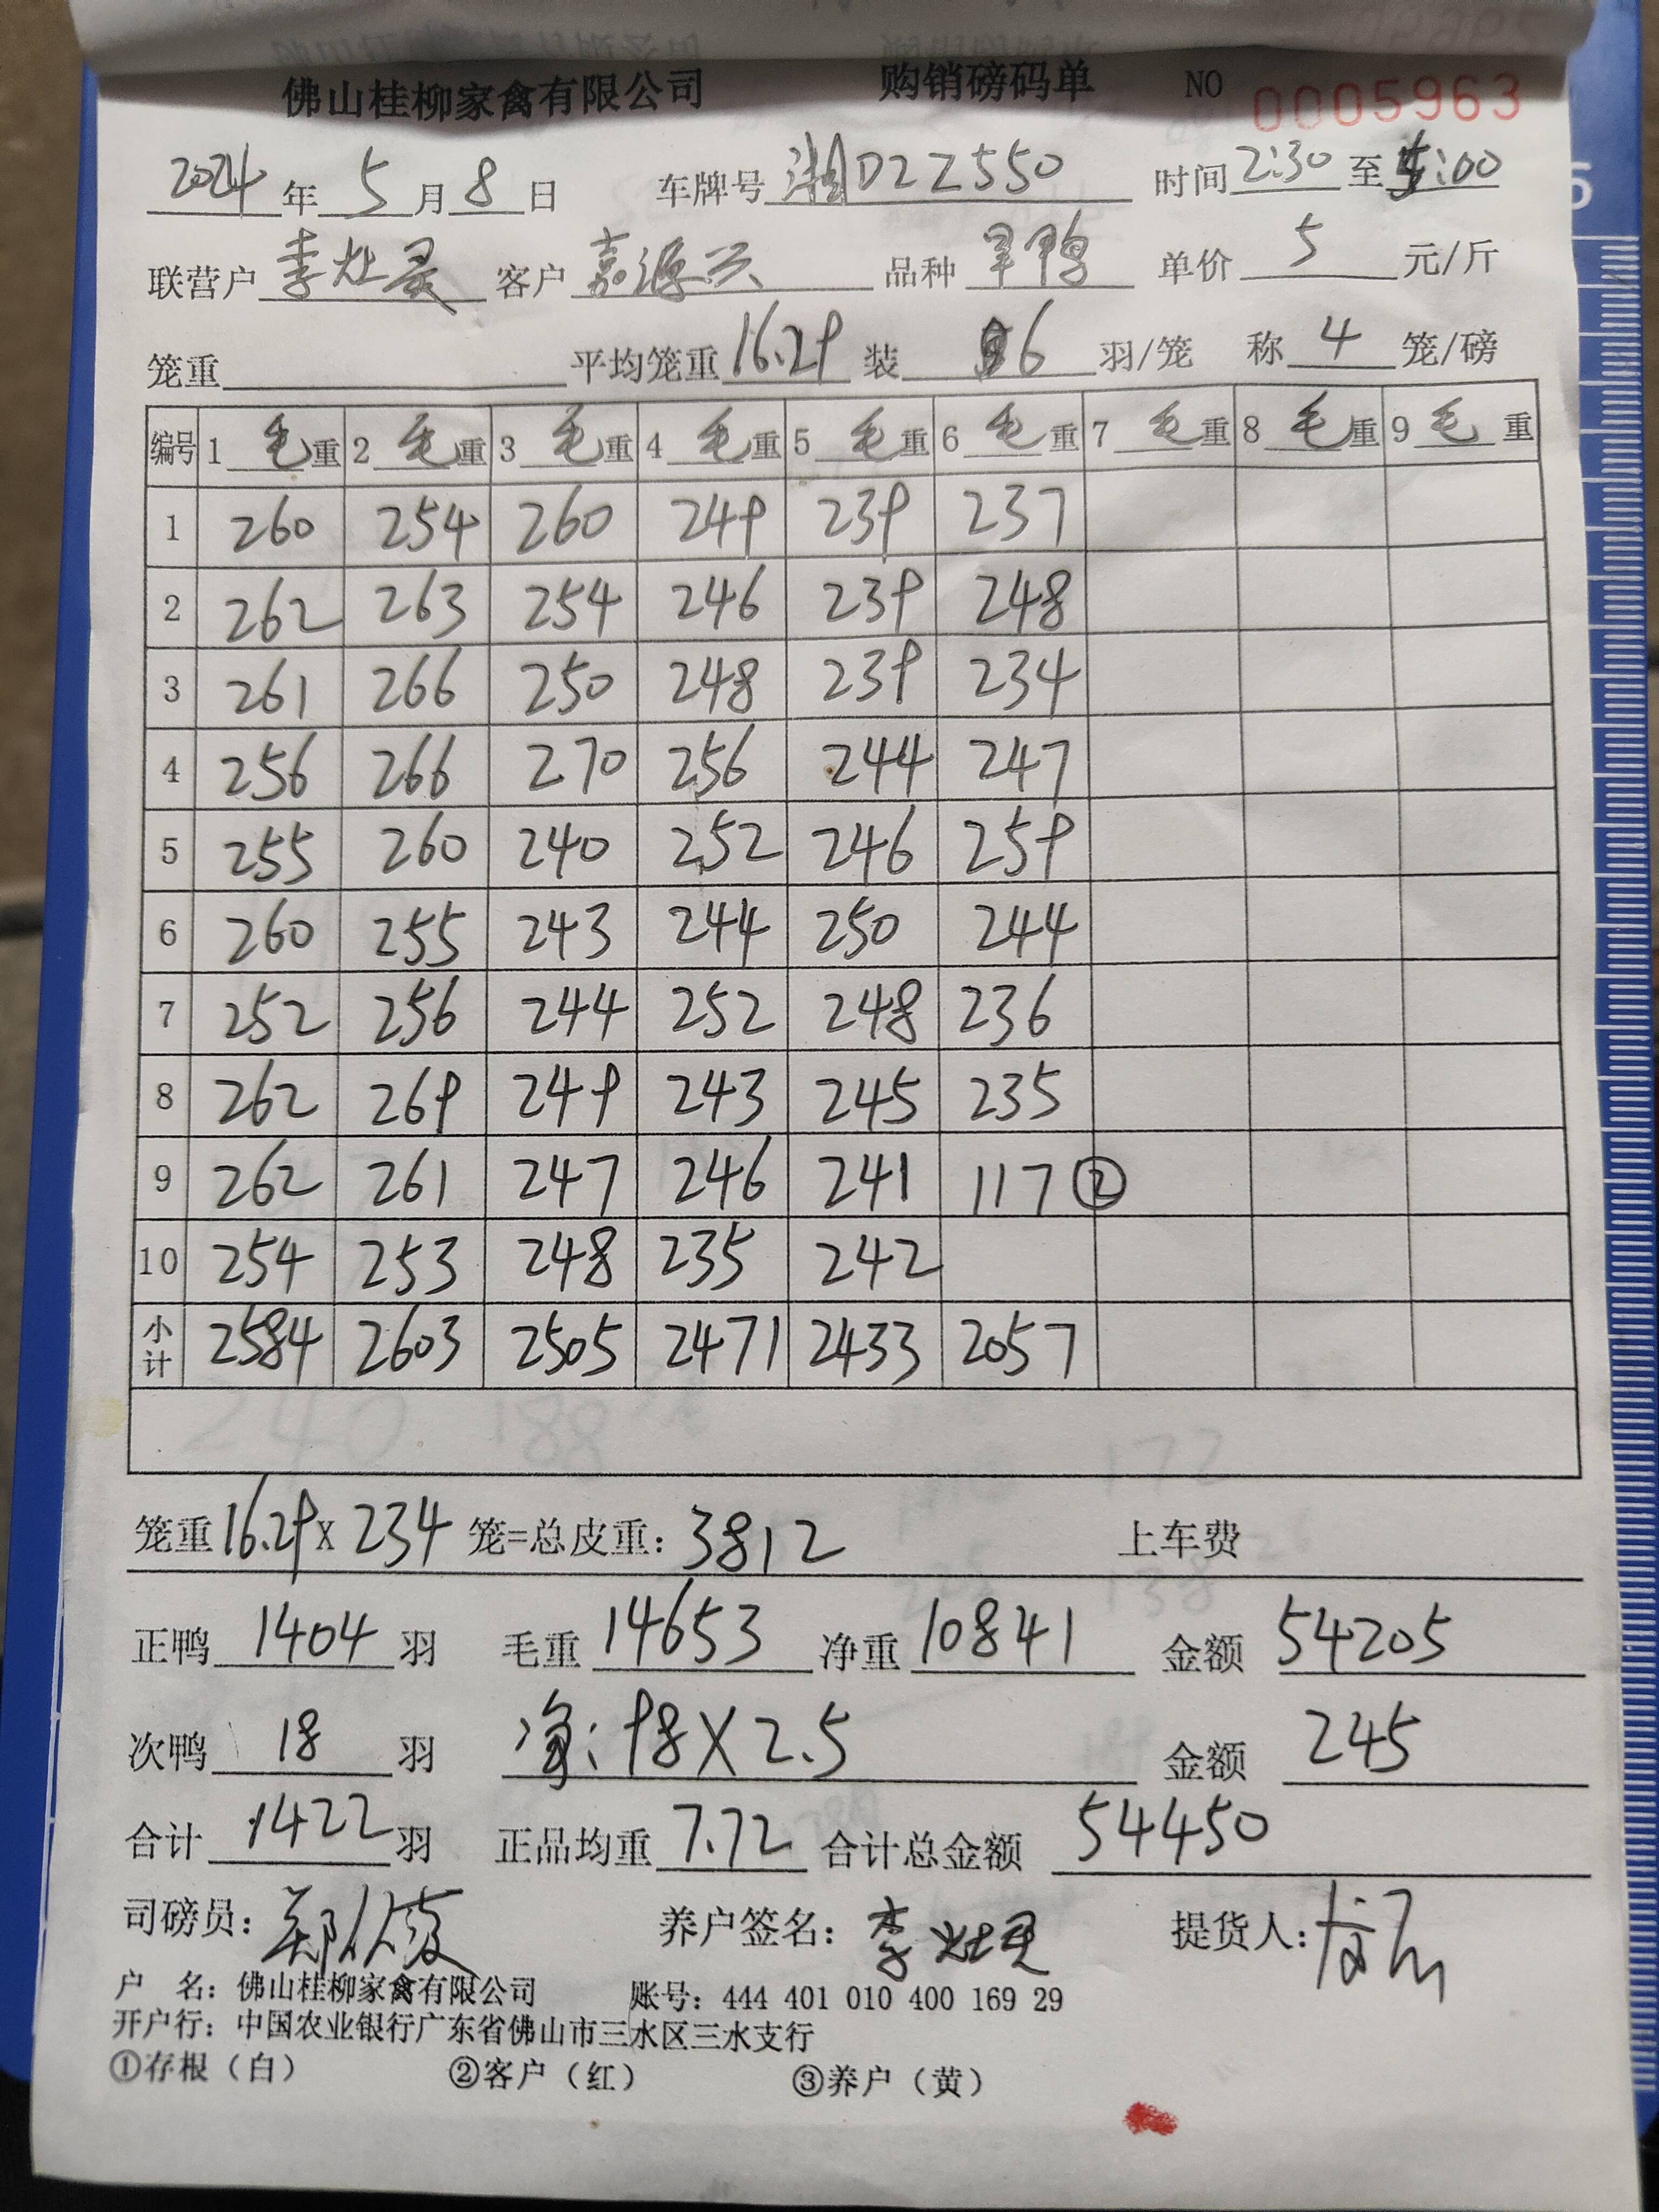 佛山桂柳家禽有限公司 购销磅码单 NO 0005963
2024年5月8日 车牌号 湘D2Z550 时间 2:30 至 5:00
联营户 李灶灵 客户 嘉源兴 品种 旱鸭 单价 5 元/斤
笼重 平均笼重 16.29 装 6 羽/笼 称 4 笼/磅
编号 1 毛重 2 毛重 3 毛重 4 毛重 5 毛重 6 毛重 7 毛重 8 毛重 9 毛重
1 260 254 260 249 239 237
2 262 263 254 246 239 248
3 261 266 250 248 239 234
4 256 266 270 256 244 247
5 255 260 240 252 246 259
6 260 255 243 244 250 244
7 252 256 244 252 248 236
8 262 269 249 243 245 235
9 262 261 247 246 241 117 ②
10 254 253 248 235 242
小计 2584 2603 2505 2471 2433 2057
笼重 16.29 X 234 笼=总皮重：3812 上车费
正鸭 1404 羽 毛重 14653 净重 10841 金额 54205
次鸭 18 羽 净：98X2.5 金额 245
合计 1422 羽 正品均重 7.72 合计总金额 54450
司磅员： 养户签名：李灶灵 提货人：
户 名：佛山桂柳家禽有限公司 账号：444 401 010 400 169 29
开户行：中国农业银行广东省佛山市三水区三水支行
①存根（白） ②客户（红） ③养户（黄）